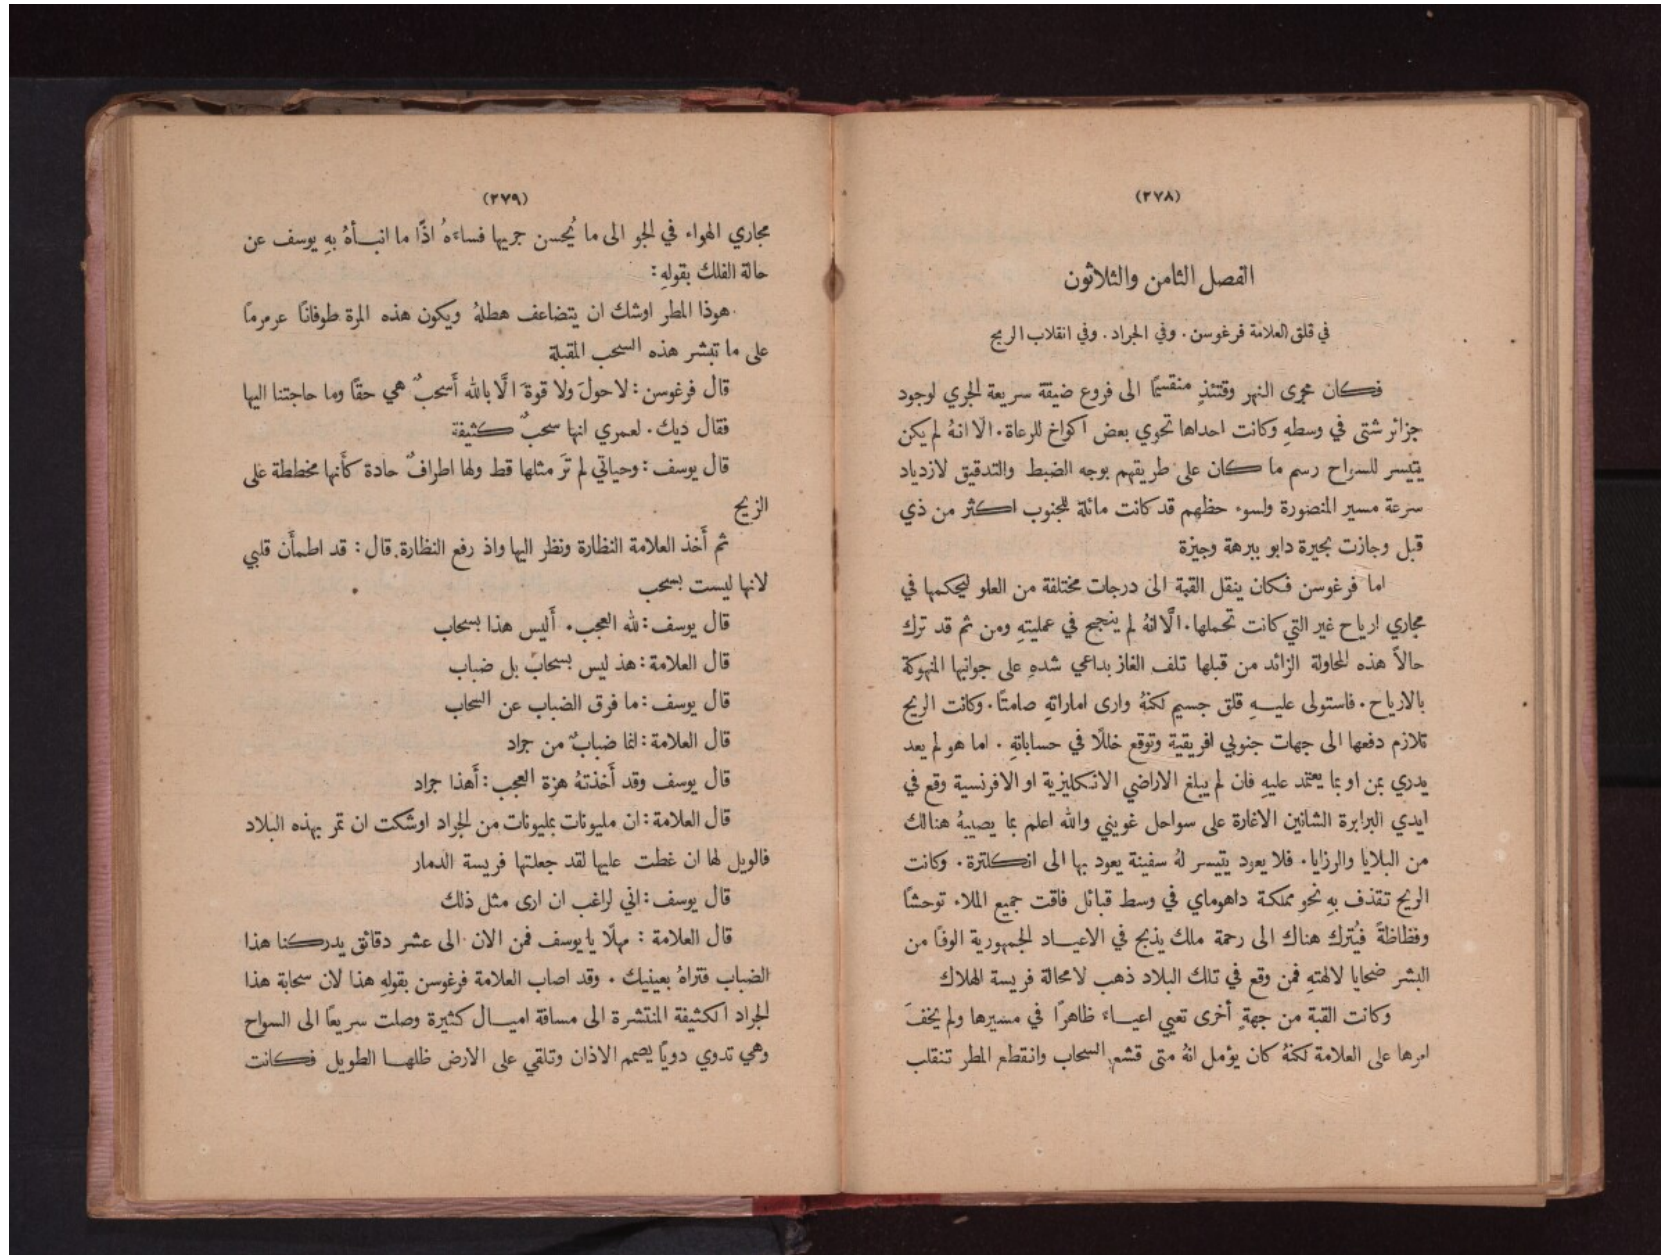 (٢٧٨)
الفصل الثامن والثلاثون
في قلق العلامة فرغوسن. وفي الجراد. وفي انقلاب الريح
فكان مجرى النهر وقتئذٍ منقسمًا الى فروع ضيقة سريعة الجري لوجود
جزائر شتى في وسطهِ وكانت احداها تحوي بعض اكواخ للرعاة. الّا انهُ لم يكن
يتيسر للسراح رسم ما كان على طريقهم بوجه الضبط والتدقيق لازدياد
سرعة مسير المنصورة ولسوء حظهم قد كانت مائلة للجنوب اكثر من ذي
قبل وجازت بحيرة دابو ببرهة وجيزة
اما فرغوسن فكان ينقل القبة الى درجات مختلفة من العلو ليحكمها في
مجاري ارياح غير التي كانت تحملها. الّا انهُ لم ينجح في عمليتهِ ومن ثم قد ترك
حالاً هذه المحاولة الزائد من قبلها تلف الغاز بداعي شدهِ على جوانبها المنهوكة
بالارياح. فاستولى عليهِ قلق جسيم لكنهُ وارى اماراتهِ صامتًا. وكانت الريح
تلازم دفعها الى جهات جنوبي افريقية وتوقع خللًا في حساباتهِ. اما هو لم يعد
يدري بمن او بما يعتمد عليهِ فان لم يبلغ الاراضي الانكليزية او الافرنسية وقع في
ايدي البرابرة الشانين الاغارة على سواحل غويني والله اعلم بما يصيبهُ هنالك
من البلايا والرزايا. فلا يعود يتيسر لهُ سفينة يعود بها الى انكلترة. وكانت
الريح تقذف بهِ نحو مملكة داهوماي في وسط قبائل فاقت جميع الملاء توحشًا
وفظاظةً فيُترك هناك الى رحمة ملك يذبح في الاعياد الجمهورية الوفًا من
البشر ضحايا لالهتهِ فمن وقع في تلك البلاد ذهب لا محالة فريسة الهلاك
وكانت القبة من جهةٍ أخرى تعيي اعياءً ظاهرًا في مسيرها ولم يخفَ
امرها على العلامة لكنهُ كان يؤمل انهُ متى قشع السحاب وانقطع المطر تنقلب
(٢٧٩)
مجاري الهواء في الجو الى ما يُحسن جريها فساءَهُ اذًا ما انبأهُ بهِ يوسف عن
حالة الفلك بقولهِ:
هوذا المطر اوشك ان يتضاعف هطلهُ ويكون هذه المرة طوفانًا عرمرمًا
على ما تبشر هذه السحب المقبلة
قال فرغوسن: لا حولَ ولا قوةَ الَّا بالله أَسحبٌ هي حقًا وما حاجتنا اليها
فقال ديك. لعمري انها سحبٌ كثيفة
قال يوسف: وحياتي لم ترَ مثلها قط ولها اطرافٌ حادة كأَنها مخططة على
الزيج
ثم أَخذ العلامة النظارة ونظر اليها واذ رفع النظارة قال: قد اطمأَن قلبي
لانها ليست بسحب
قال يوسف: لله العجب. أَليس هذا بسحاب
قال العلامة: هذ ليس بسحابٍ بل ضباب
قال يوسف: ما فرق الضباب عن السحاب
قال العلامة: انما ضبابٌ من جراد
قال يوسف وقد أَخذتهُ هزة العجب: أَهذا جراد
قال العلامة: ان مليونات بمليونات من الجراد اوشكت ان تمر بهذه البلاد
فالويل لها ان غطت عليها لقد جعلتها فريسة الدمار
قال يوسف: اني لراغب ان ارى مثل ذلك
قال العلامة: مهلًا يا يوسف فمن الان الى عشر دقائق يدركنا هذا
الضباب فتراهُ بعينيك. وقد اصاب العلامة فرغوسن بقولهِ هذا لان سحابة هذا
الجراد الكثيفة المنتشرة الى مسافة اميال كثيرة وصلت سريعًا الى السواح
وهي تدوي دويًا يصمم الاذان وتلقي على الارض ظلها الطويل فكانت